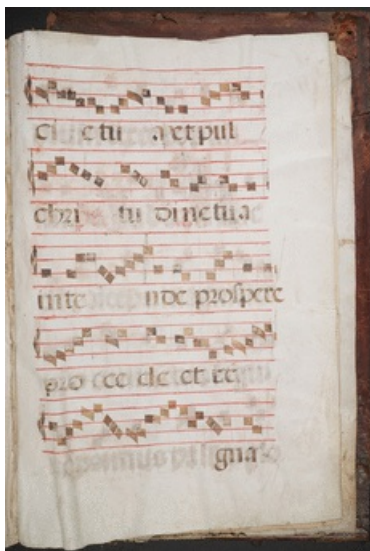 ctu a et pul
chri tu dine tua
inte nde prospere
pro ce de et re
gna